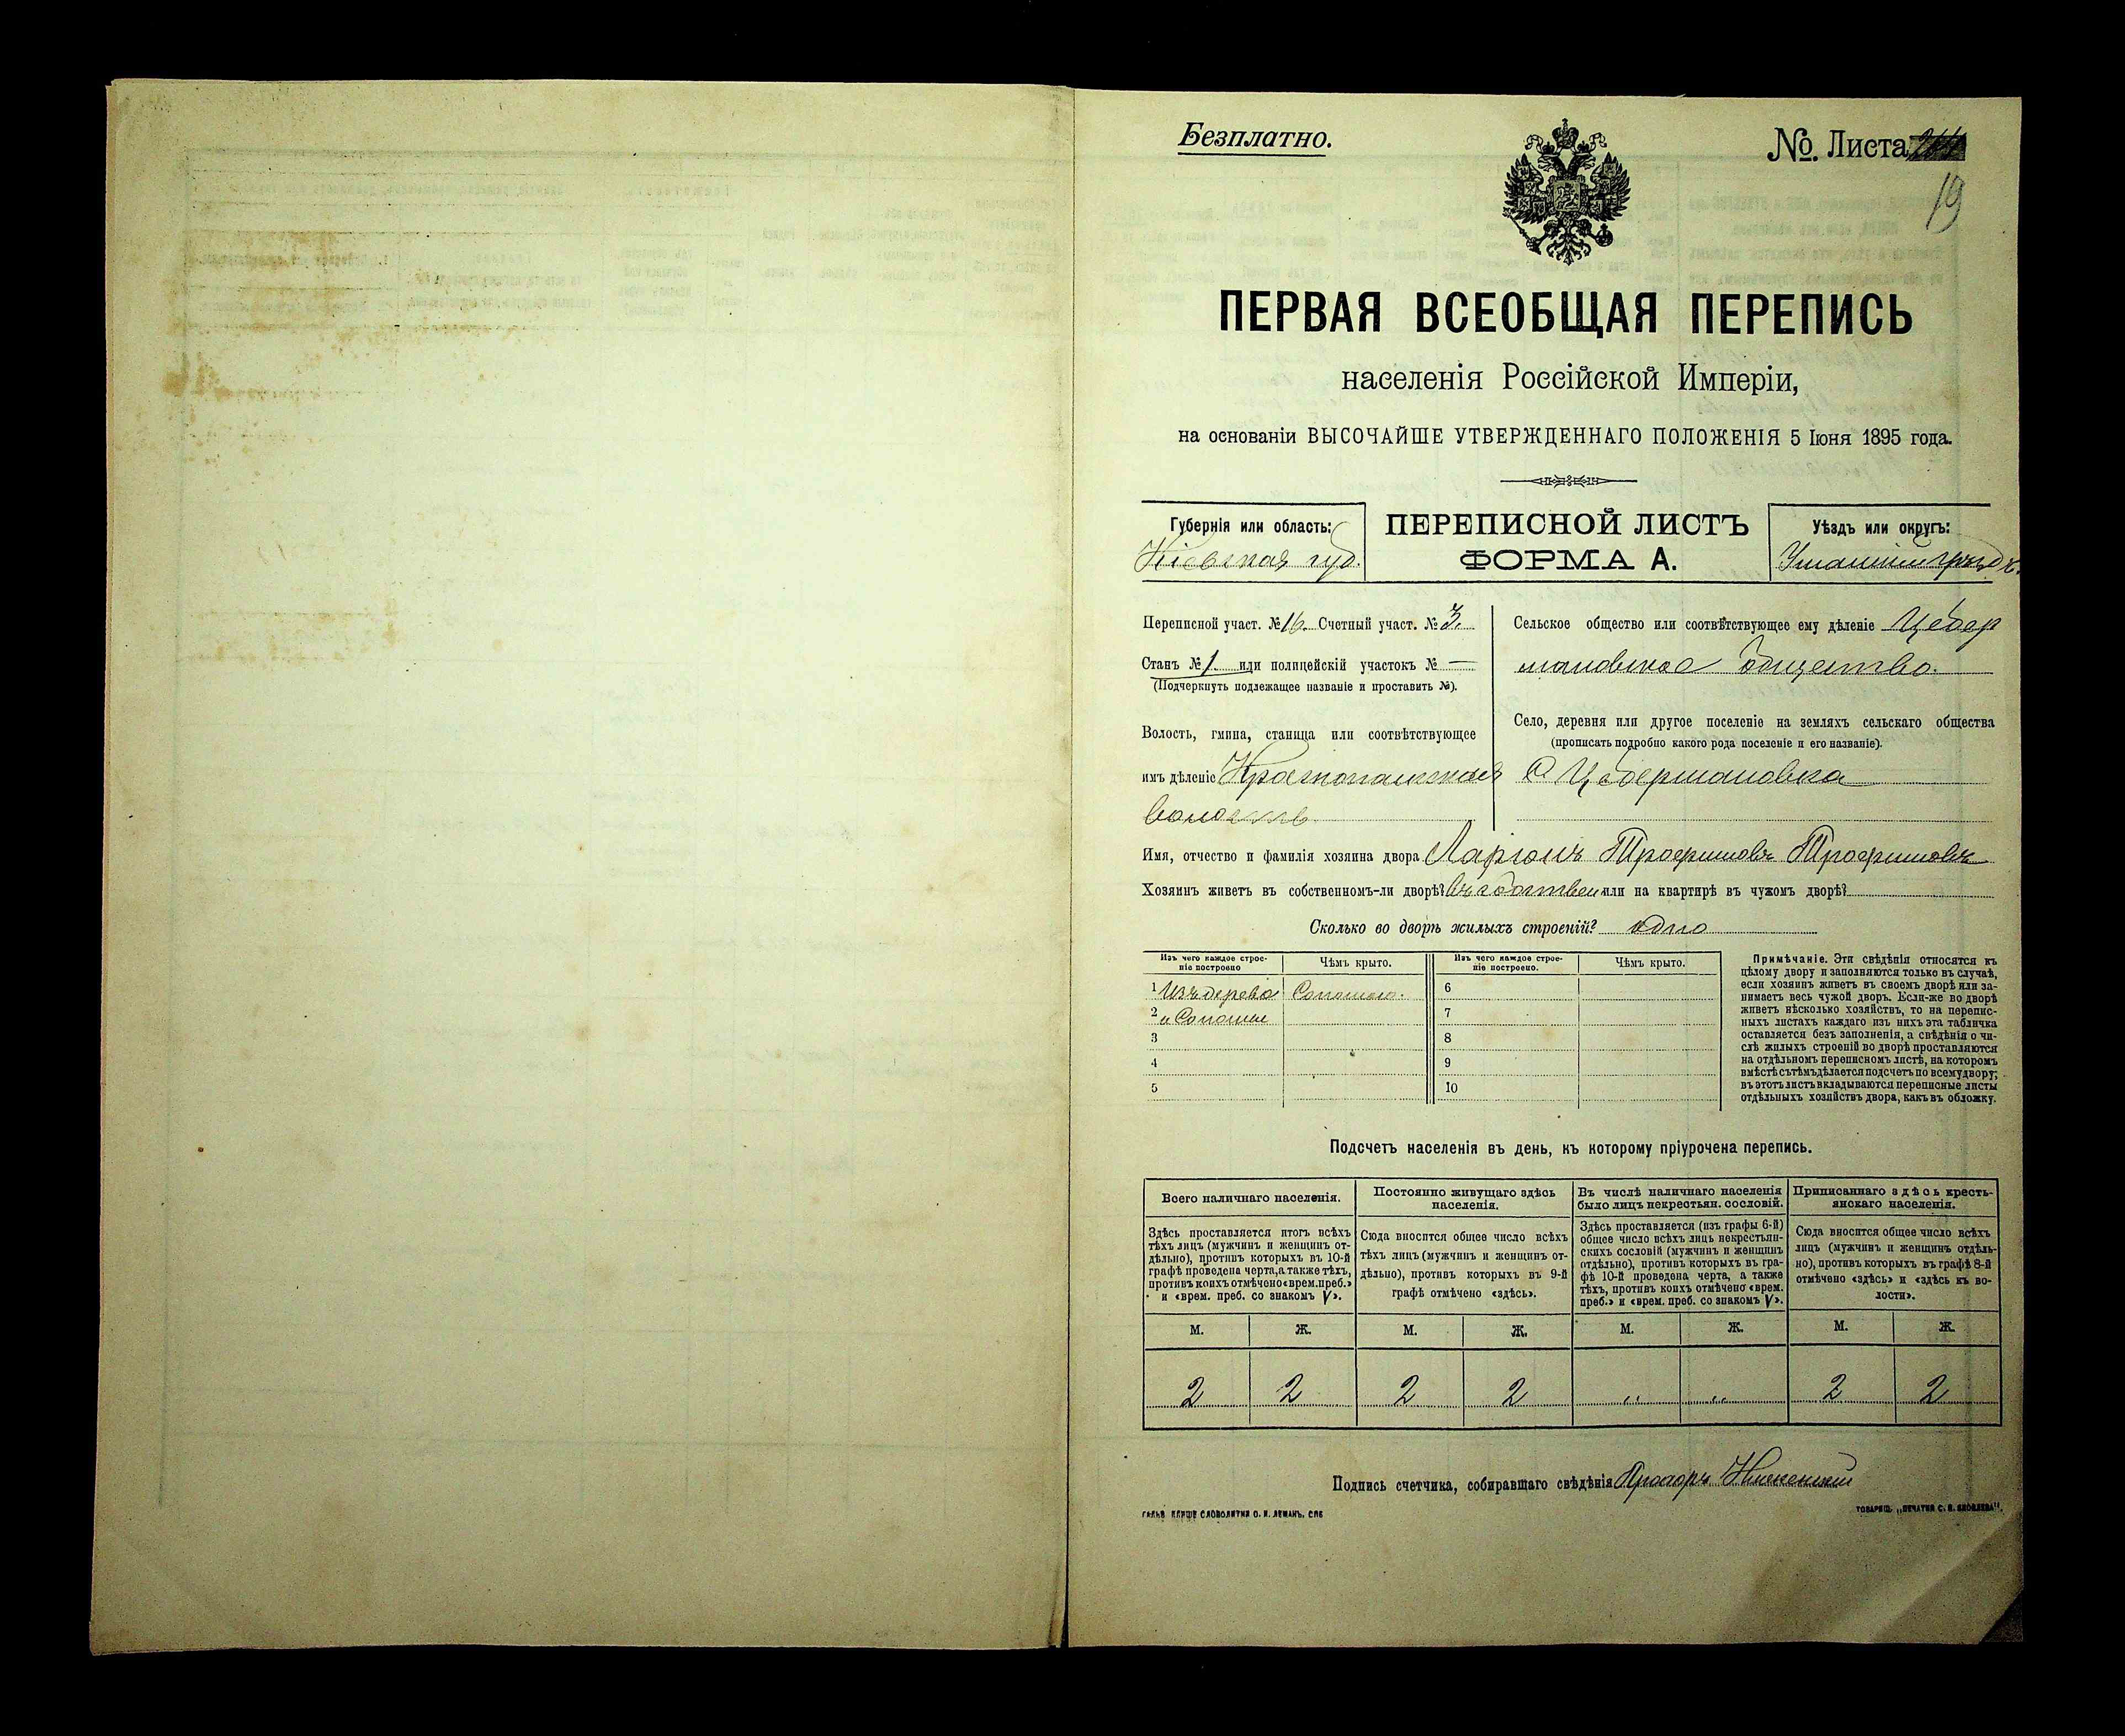 Безплатно.
№. Листа
19
ПЕРВАЯ ВСЕОБЩАЯ ПЕРЕПИСЬ
населенія Россійской Имперіи,
на основаніи ВЫСОЧАЙШЕ УТВЕРЖДЕННАГО ПОЛОЖЕНІЯ 5 Іюня 1895 года.
Губернія или область:
Кіевская губ.
ПЕРЕПИСНОЙ ЛИСТЪ
ФОРМА А.
Уѣздъ или округъ:
Уманскій уѣздъ.
Переписной участ. № 16. Счетный участ. № 3.
Станъ № 1. или полицейскій участокъ № —
(Подчеркнуть подлежащее названіе и проставить №).
Волость, гмина, станица или соотвѣтствующее
имъ дѣленіе
волость
Сельское общество или соотвѣтствующее ему дѣленіе Цебер
мановское Общество.
Село, деревня или другое поселеніе на земляхъ сельскаго общества
(прописать подробно какого рода поселеніе и его названіе).
С Цебермановка
Имя, отчество и фамилія хозяина двора Ларіонъ Трофимовъ Трофимовъ
Хозяинъ живетъ въ собственномъ-ли дворѣ? въ собствен или на квартирѣ въ чужомъ дворѣ?
Сколько во дворѣ жилыхъ строеній? одно
Изъ чего каждое строе-
ніе построено
Чѣмъ крыто.
Изъ чего каждое строе-
ніе построено.
Чѣмъ крыто.
1 Изъ дерева Соломою.
2 и Соломы
3
4
5
6
7
8
9
10
Примѣчаніе. Эти свѣдѣнія относятся къ
цѣлому двору и заполняются только въ случаѣ,
если хозяинъ живетъ въ своемъ дворѣ или за-
нимаетъ весь чужой дворъ. Если-же во дворѣ
живетъ нѣсколько хозяйствъ, то на перепис-
ныхъ листахъ каждаго изъ нихъ эта табличка
оставляется безъ заполненія, а свѣдѣнія о чи-
слѣ жилыхъ строеній во дворѣ проставляются
на отдѣльномъ переписномъ листѣ, на которомъ
вмѣстѣ съ тѣмъ дѣлается подсчетъ по всему двору;
въ этотъ листъ вкладываются переписные листы
отдѣльныхъ хозяйствъ двора, какъ въ обложку.
Подсчетъ населенія въ день, къ которому пріурочена перепись.
Всего наличнаго населенія.
Здѣсь проставляется итогъ всѣхъ
тѣхъ лицъ (мужчинъ и женщинъ от-
дѣльно), противъ которыхъ въ 10-й
графѣ проведена черта, а также тѣхъ,
противъ коихъ отмѣчено «врем. преб.»
и «врем. преб. со знакомъ V».
Постоянно живущаго здѣсь
населенія.
Сюда вносится общее число всѣхъ
тѣхъ лицъ (мужчинъ и женщинъ от-
дѣльно), противъ которыхъ въ 9-й
графѣ отмѣчено «здѣсь».
Въ числѣ наличнаго населенія
было лицъ некрестьян. сословій.
Здѣсь проставляется (изъ графы 6-й)
общее число всѣхъ лицъ некрестьян-
скихъ сословій (мужчинъ и женщинъ
отдѣльно), противъ которыхъ въ гра-
фѣ 10-й проведена черта, а также
тѣхъ, противъ коихъ отмѣчено «врем.
преб.» и «врем. преб. со знакомъ V».
Приписаннаго здѣсь кресть-
янскаго населенія.
Сюда вносится общее число всѣхъ
лицъ (мужчинъ и женщинъ отдѣль-
но), противъ которыхъ въ графѣ 8-й
отмѣчено «здѣсь» и «здѣсь къ во-
лости».
М. Ж. М. Ж. М. Ж. М. Ж.
2 2 2 2 „ „ 2 2
Подпись счетчика, собиравшаго свѣдѣнія Прохоръ
СЛОВОЛИТНЯ О. И. ЛЕМАНЪ, СПБ
ТОВАРИЩ. „ПЕЧАТНЯ С. П. ЯКОВЛЕВА".